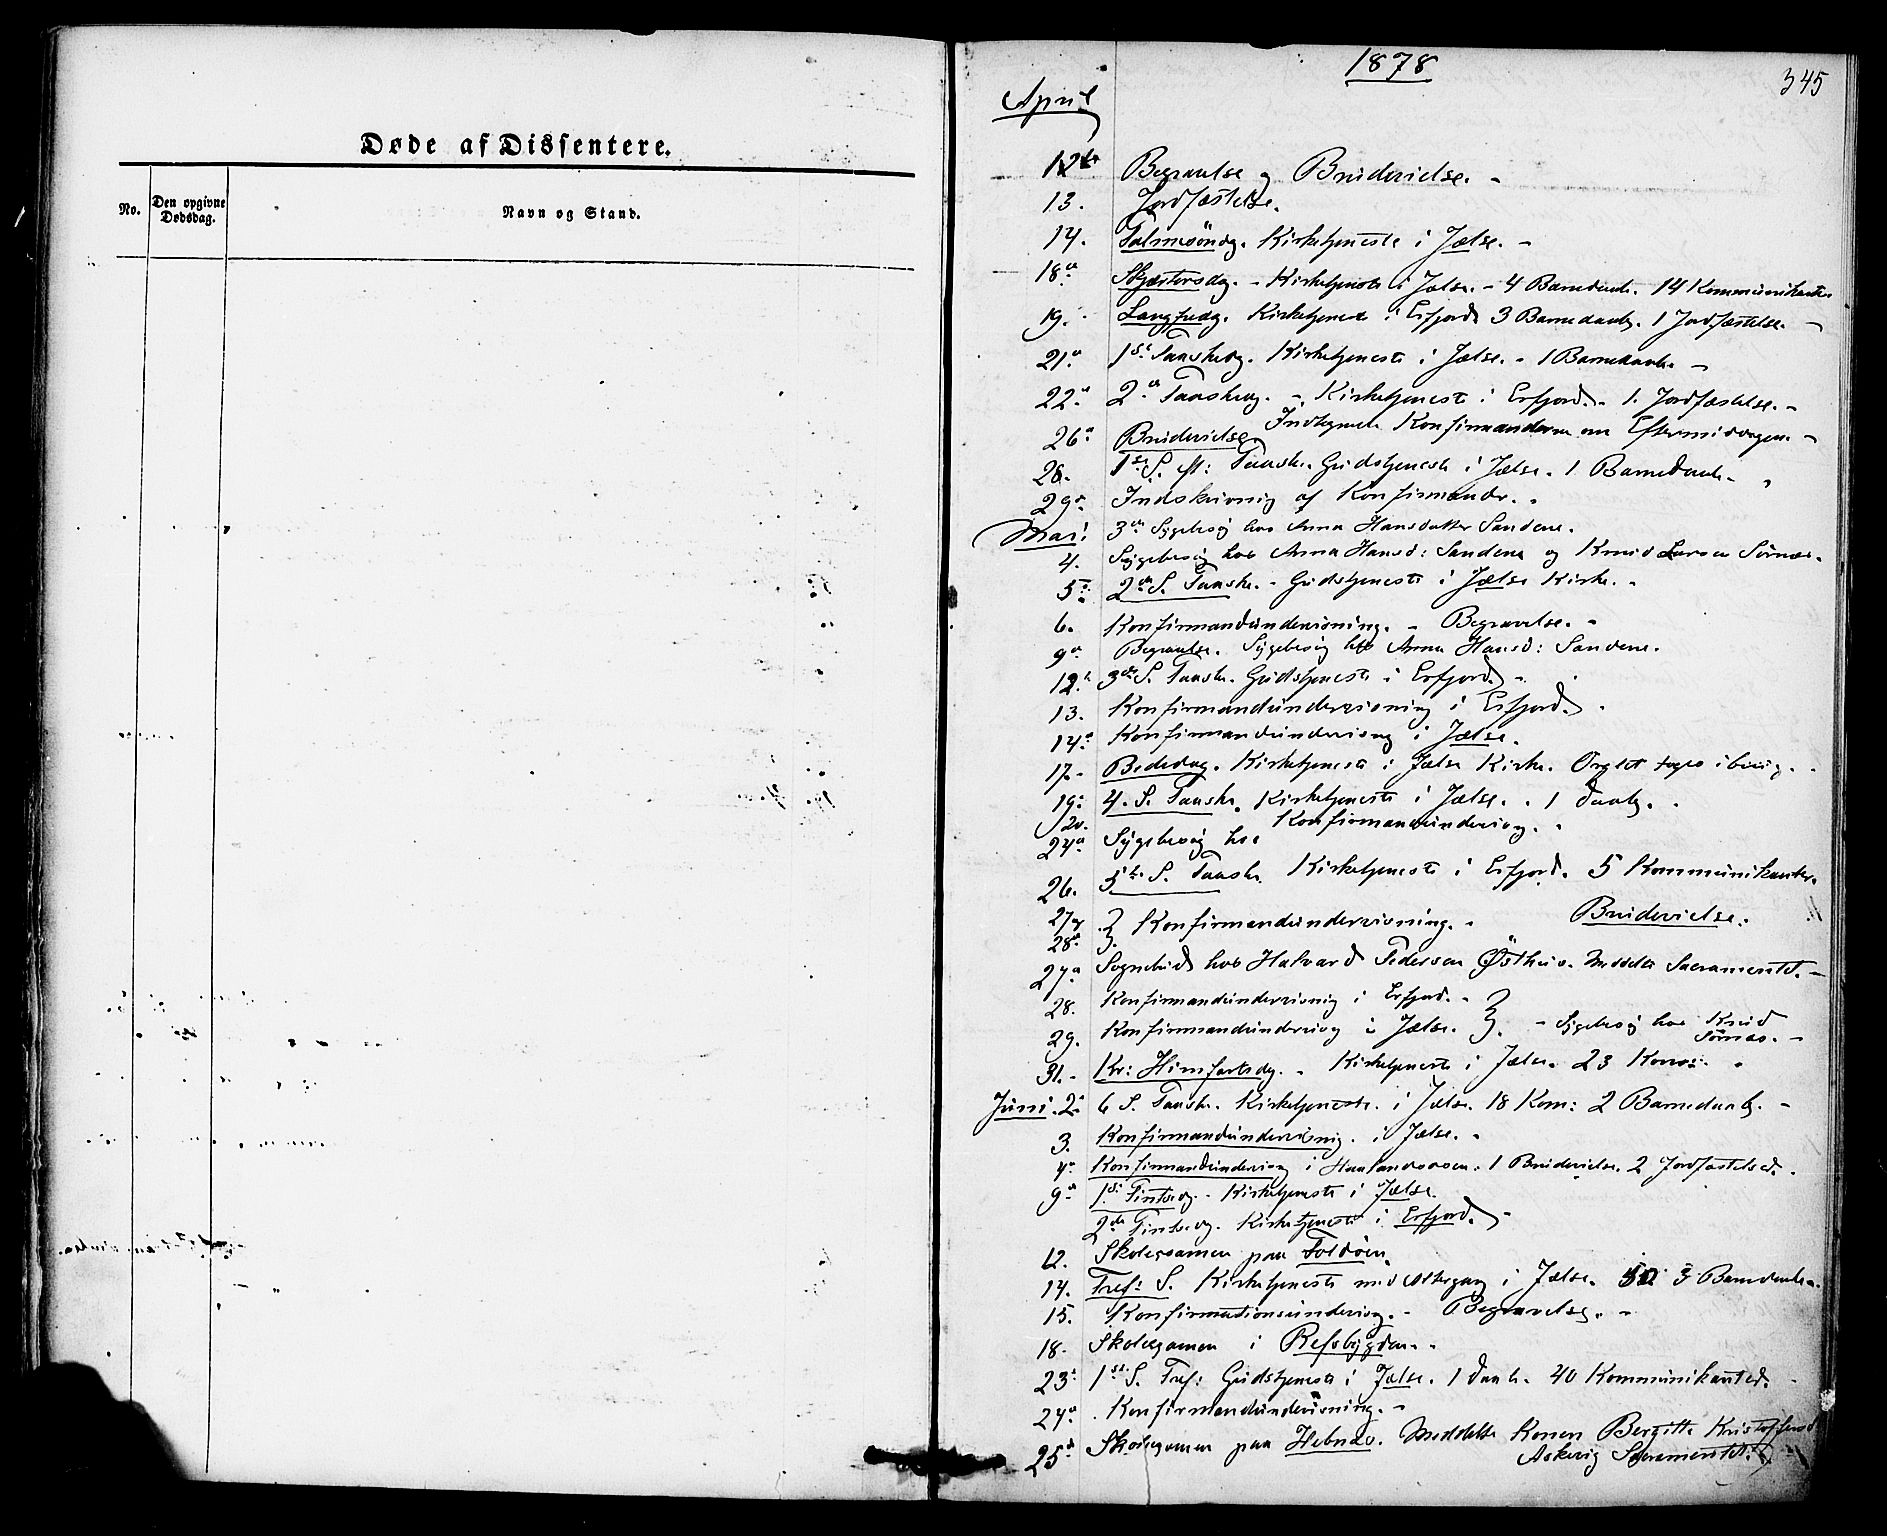 Døde af Dissentere.
No.
Den opgivne
Dødsdag.
Navn og Stand.
1878
345
April
12te Begravelse og Brudevielse. -
13. Jordfæstelse.
14. Palmesøndg. Kirketjeneste i Jælse. -
18de Skjærtorsdag. - Kirketjeneste i Jælse. - 4 Barnedaab. 14 Kommunikanter
19. Langfredg. Kirketjeneste i Erfjord. 3 Barnedaab. 1 Jordfæstelse. -
21de 1ste Paaskedg. Kirketjeneste i Jælse. - 1 Barnedaab. -
22de 2den Paaskedg. - Kirketjeneste i Erfjord. - 1. Jordfæstelse. -
Indtegnede Konfirmanderne om Eftermiddagen. -
26de Brudevielse
28. 1ste S. e: Paaske. Gudstjeneste i Jælse. 1 Barnedaab. -
29de Indskrivning af Konfirmander. -
Mai 3de Sygebesøg hos Anna Hansdatter Sandene.
4. Sygebesøg hos Anna Hansd: Sandene og Knud Larsen Sørnæs.
5te 2den S. Paaske. - Gudstjeneste i Jælse Kirke. -
6. Konfirmandundervisning. - Begravelse. -
9de Begravelse. Sygebesøg hos Anna Hansd: Sandene.
12te 3die S. Paaske. Gudstjeneste i Erfjord. -
13. Konfirmandundervisning i Erfjord. -
14de Konfirmandundervisng i Jælse.
17. - Bededag. Kirketjeneste i Jælse Kirke. Orglet toges i brug. -
19de 4. S. Paaske. Kirketjeneste i Jælse. - 1 Daab. -
20. Konfirmandundervisng. -
24de Sygebesøg hos
26. 5te S. Paaske. Kirketjeneste i Erfjord. 5 Kommunikanter.
27 og
28de } Konfirmandundervisning. - Brudevielse.
27de Sognebud hos Halvard Pedersen Østhus. Meddelte Sacramentet. -
28. Konfirmandundervisnig i Erfjord. -
29. Konfirmandundervisng i Jælse. } - Sygebesøg hos Knud
Sørnæs. -
31. - Kr: Himfartsdg. - Kirketjeneste i Jælse. 23 Kom: -
Juni. 2. 6 S. Paaske. Kirketjeneste. i Jælse. 18 Kom: 2 Barnedaab. -
3. Konfirmandundervisnig. i Jælse. -
4de Konfirmandundervisng i 1 Brudevielse. 2 Jordfæstelser. -
9de 1ste Pintsedg. - Kirketjeneste i Jælse.
2den Pintsedg. Kirketjeneste i Erfjord. -
12. Skoleexamen paa Foldøen.
14. Tref: S. Kirketjeneste med Altergang i Jælse. 3 Barnedaab.
15. Konfirmationsundervisng. - Begravelse. -
18. Skoleexamen i Refsbygden. -
23de 1ste S. Tref: Gudstjeneste i Jælse. 1 Daab. 40 Kommunikanter. -
24de Konfirmandundervisning. -
25de Skoleexamen paa Hebnæs. Meddelte Konen Bergitte Kristoffersd
Askevig Sacramentet.